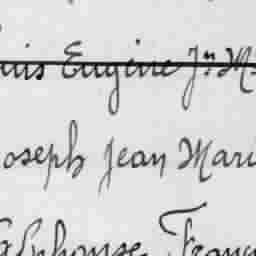 uis Eugène Jn M
oseph Jean Mari
alphonse Franç